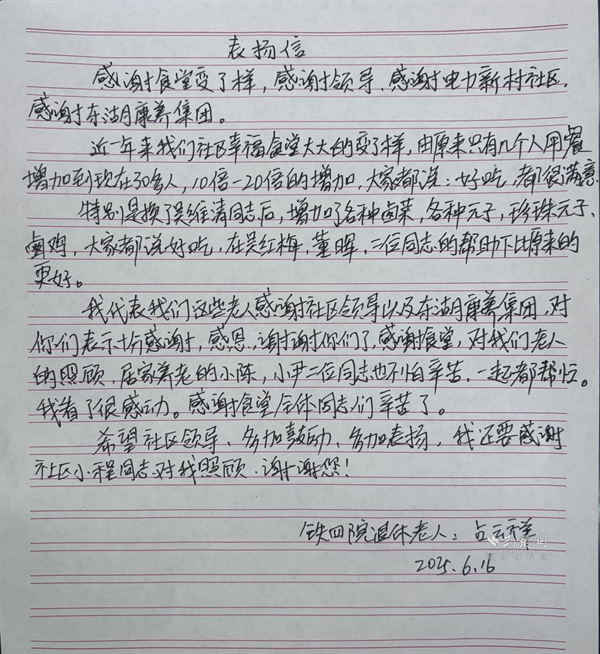 表扬信
感谢食堂变了样，感谢领导、感谢电力新村社区，
感谢东湖康养集团。
近一年来我们社区幸福食堂大大的变了样，由原来只有几个人用餐
增加到现在30多人，10倍-20倍的增加，大家都说：好吃，都很满意
特别是换了吴维清同志后，增加了各种卤菜，各种元子，珍珠元子、
卤鸡，大家都说好吃，在吴红梅，董晖，二位同志的帮助下比原来的
更好。
我代表我们这些老人感谢社区领导以及东湖康养集团，对
你们表示十分感谢，感恩，谢谢你们了，感谢食堂，对我们老人
的照顾，居家养老的小陈，小尹二位同志也不怕辛苦，一起都帮忙。
我看了很感动。感谢食堂全体同志们辛苦了。
希望社区领导、多加鼓励、多加表扬，我还要感谢
社区小程同志对我照顾、谢谢您！
铁四院退休老人：占云祥
2025.6.16